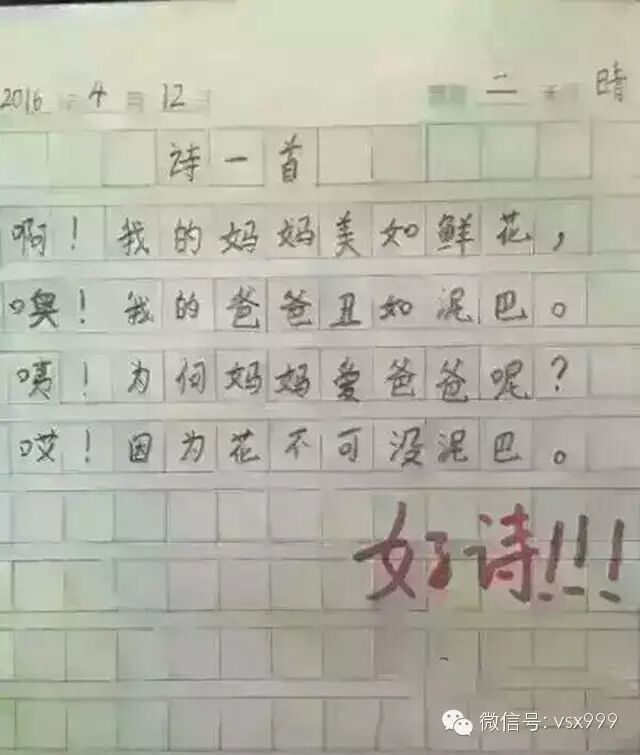 2016 年 4 月 12 日 星期 二 天气 晴
诗一首
啊！我的妈妈美如鲜花，
噢！我的爸爸丑如泥巴。
咦！为何妈妈爱爸爸呢？
哎！因为花不可没泥巴。
好诗!!!
微信号: vsx999